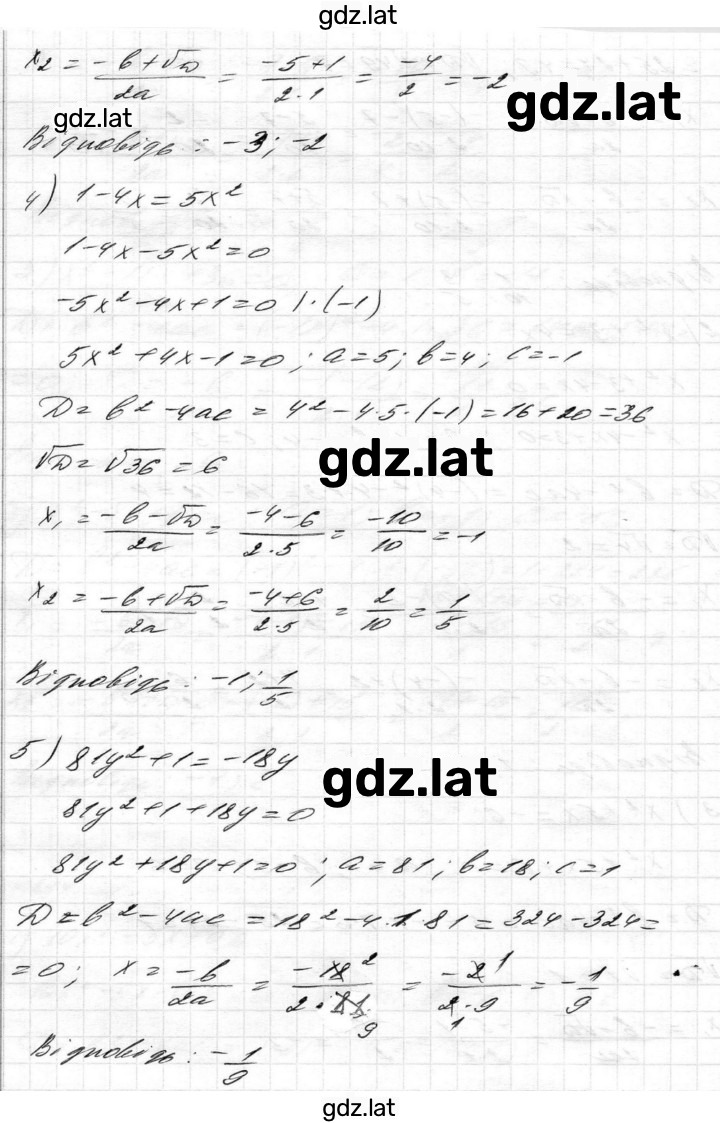 gdz.lat
x₂ = (-b+√D)/(2a) = (-5+1)/(2·1) = (-4)/2 = -2
gdz.lat
gdz.lat
Відповідь: -3; -2
4) 1-4x=5x²
1-4x-5x²=0
-5x²-4x+1=0 |·(-1)
5x²+4x-1=0; a=5; b=4; c=-1
D=b²-4ac=4²-4·5·(-1)=16+20=36
√D=√36=6
gdz.lat
x₁ = (-b-√D)/(2a) = (-4-6)/(2·5) = (-10)/10 = -1
x₂ = (-b+√D)/(2a) = (-4+6)/(2·5) = 2/10 = 1/5
Відповідь: -1; 1/5
5) 81y²+1=-18y
gdz.lat
81y²+1+18y=0
81y²+18y+1=0; a=81; b=18; c=1
D=b²-4ac=18²-4·1·81=324-324=
=0; x = (-b)/(2a) = (-18 2)/(2·81 9) = (-2 1)/(2 1·9) = -1/9
Відповідь: -1/9
gdz.lat